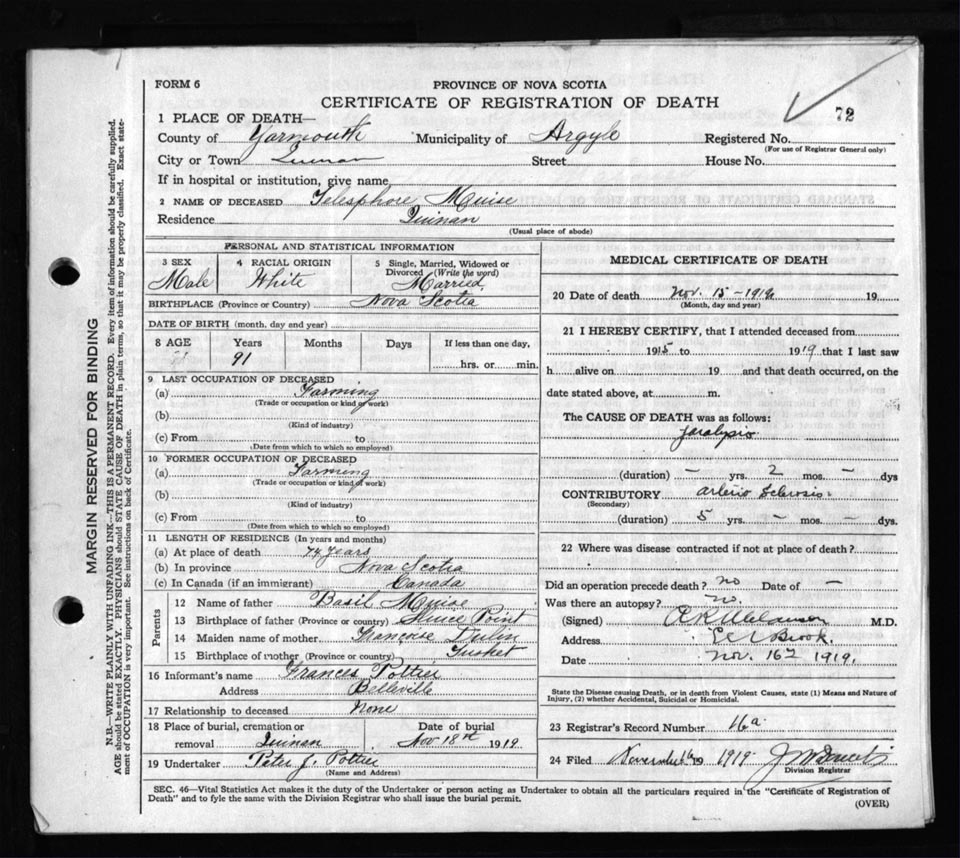 FORM 6
PROVINCE OF NOVA SCOTIA
CERTIFICATE OF REGISTRATION OF DEATH
72
1 PLACE OF DEATH—
County of Yarmouth Municipality of Argyle Registered No.
(For use of Registrar General only)
City or Town Quinan Street House No.
If in hospital or institution, give name
2 NAME OF DECEASED Telesphore Muise
Residence Quinan
(Usual place of abode)
PERSONAL AND STATISTICAL INFORMATION
3 SEX Male
4 RACIAL ORIGIN White
5 Single, Married, Widowed or Divorced (Write the word) Married
BIRTHPLACE (Province or Country) Nova Scotia
DATE OF BIRTH (month, day and year)
8 AGE Years 91 Months Days If less than one day, hrs. or min.
9 LAST OCCUPATION OF DECEASED
(a) Farming
(Trade or occupation or kind of work)
(b)
(Kind of industry)
(c) From to
(Date from which to which so employed)
10 FORMER OCCUPATION OF DECEASED
(a) Farming
(Trade or occupation or kind of work)
(b)
(Kind of industry)
(c) From to
(Date from which to which so employed)
11 LENGTH OF RESIDENCE (In years and months)
(a) At place of death 74 years
(b) In province Nova Scotia
(c) In Canada (if an immigrant) Canada
Parents
12 Name of father Basil Muise
13 Birthplace of father (Province or country) Sluice Point
14 Maiden name of mother Francoise Dulin
15 Birthplace of mother (Province or country) Tusket
16 Informant's name Frances Pottier
Address Belleville
17 Relationship to deceased None
18 Place of burial, cremation or removal Quinan
Date of burial Nov 18th 1919
19 Undertaker Peter J. Pottier
(Name and Address)
MEDICAL CERTIFICATE OF DEATH
20 Date of death Nov. 15-1919 19
(Month, day and year)
21 I HEREBY CERTIFY, that I attended deceased from
1915 to 1919 that I last saw
h alive on 19 and that death occurred, on the
date stated above, at m.
The CAUSE OF DEATH was as follows:
Paralysis
(duration) – yrs. 2 mos. – dys
CONTRIBUTORY arterio Sclerosis
(Secondary)
(duration) 5 yrs. – mos. – dys.
22 Where was disease contracted if not at place of death?
Did an operation precede death? no Date of –
Was there an autopsy? no.
(Signed) M.D.
Address Brook.
Date Nov. 16th 1919.
State the Disease causing Death, or in death from Violent Causes, state (1) Means and Nature of
Injury, (2) whether Accidental, Suicidal or Homicidal.
23 Registrar's Record Number 16a
24 Filed November 16 19 1919
Division Registrar
SEC. 46—Vital Statistics Act makes it the duty of the Undertaker or person acting as Undertaker to obtain all the particulars required in the "Certificate of Registration of
Death" and to fyle the same with the Division Registrar who shall issue the burial permit.
(OVER)
MARGIN RESERVED FOR BINDING
N.B.—WRITE PLAINLY WITH UNFADING INK—THIS IS A PERMANENT RECORD. Every item of information should be carefully supplied.
AGE should be stated EXACTLY. PHYSICIANS should STATE CAUSE OF DEATH in plain terms, so that it may be properly classified. Exact state-
ment of OCCUPATION is very important. See instructions on back of Certificate.